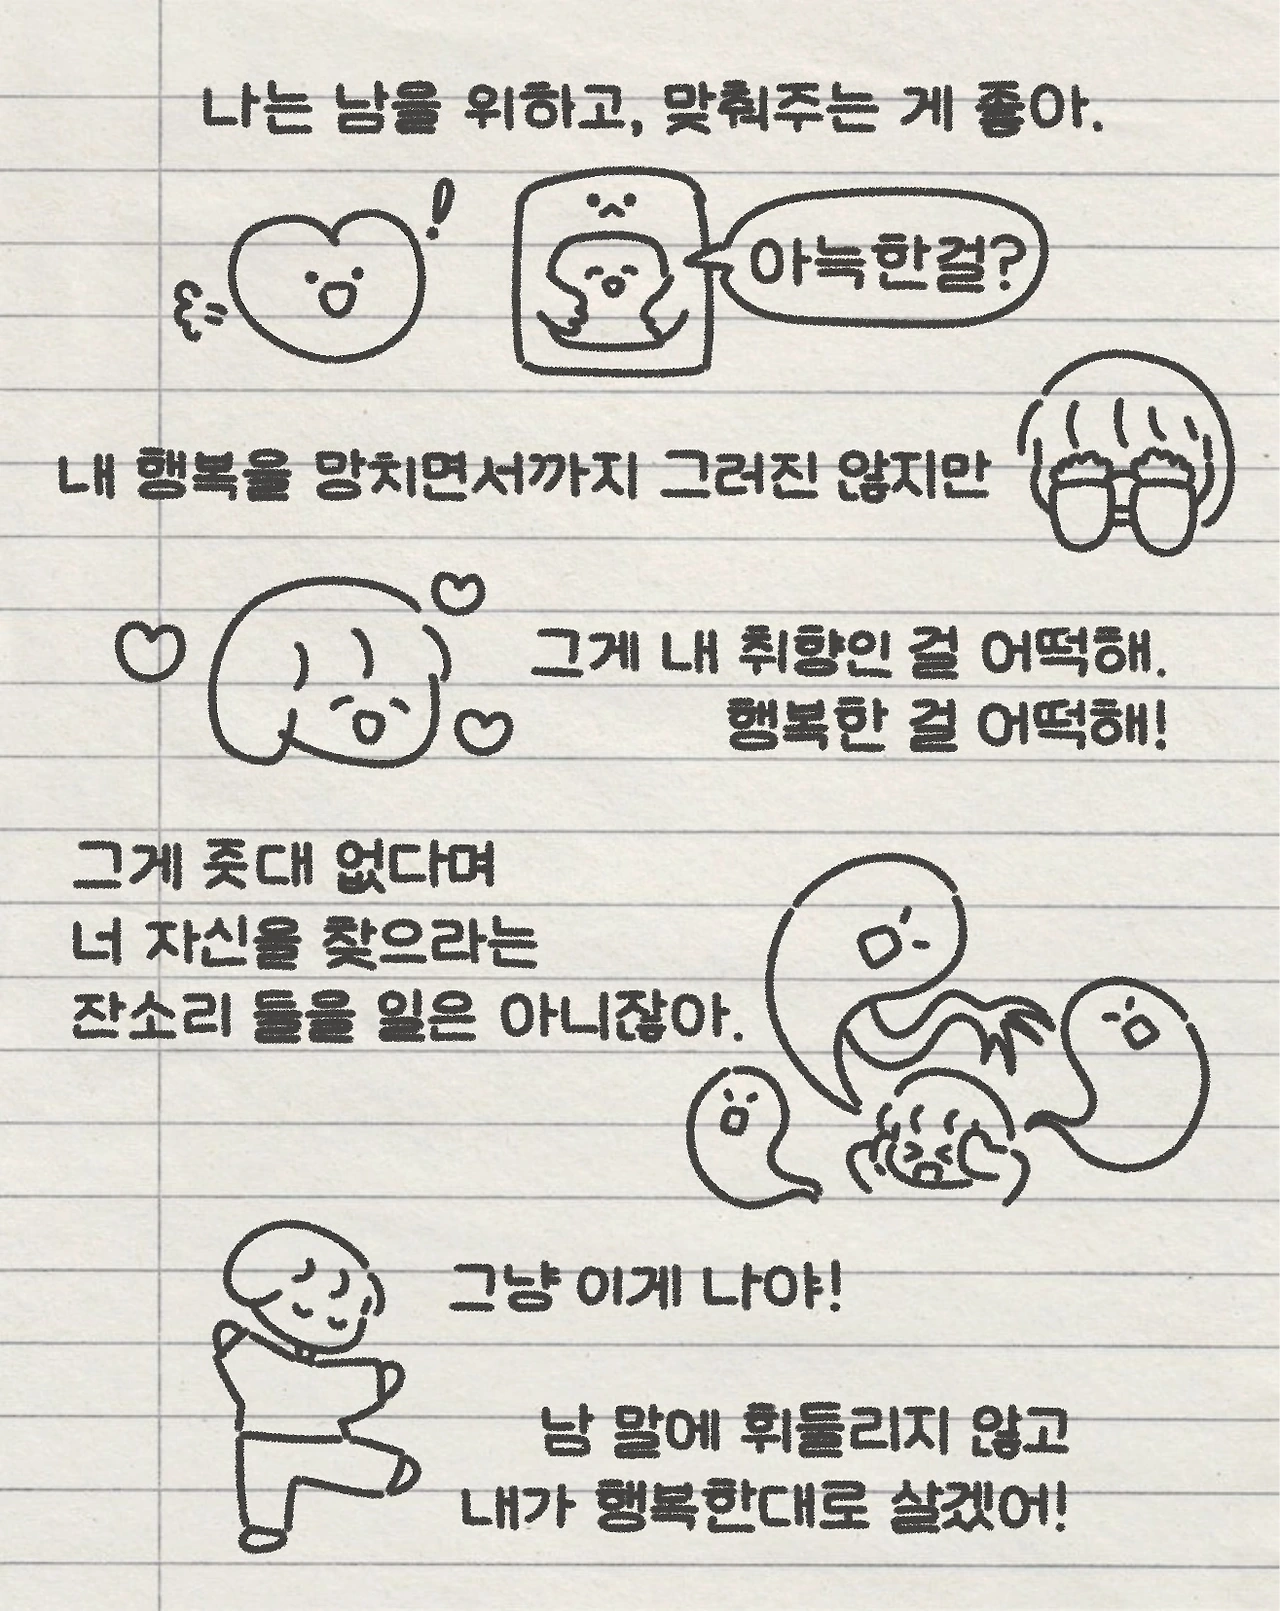 나는 남을 위하고, 맞춰주는 게 좋아.
아늑한걸?
내 행복을 망치면서까지 그러진 않지만
그게 내 취향인 걸 어떡해.
행복한 걸 어떡해!
그게 줏대 없다며
너 자신을 찾으라는
잔소리 들을 일은 아니잖아.
그냥 이게 나야!
남 말에 휘둘리지 않고
내가 행복한대로 살겠어!